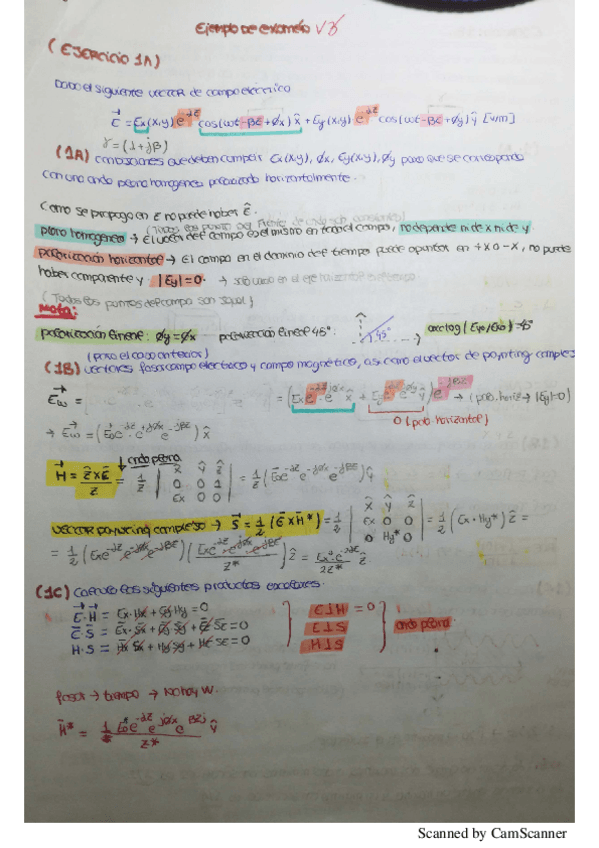 Ejemplo de examen V3
(EJERCICIO 1A)
Dado el siguiente vector de campo eléctrico
E = Ex(x,y) e^-αz cos(ωt - βz + φx) x̂ + Ey(x,y) e^-αz cos(ωt - βz + φy) ŷ [V/m]
γ = (α + jβ)
(1A) condiciones que deben cumplir Ex(x,y), φx, Ey(x,y), φy para que se corresponda
con una onda plana homogénea polarizada horizontalmente.
Como se propaga en z no puede haber ẑ.
plana homogénea → El valor del campo es el mismo en todo el campo, no depende ni de x ni de y
polarización horizontal → El campo en el dominio del tiempo puede apuntar en +x o -x, no puede
haber componente y |Ey| = 0. → solo varía en el eje horizontal
(Todos los puntos del campo son igual)
Nota:
polarización lineal: φy = φx polarización lineal 45° : 45° arctog (Eyo/Exo) = 45°
(para el caso anterior)
(1B) vectores fasor campo eléctrico y campo magnético, así como el vector de poynting complejo
Eω = = (Ex e^-αz e^jφx x̂ + Ey e^-αz e^jφy ŷ) e^-jβz → (polo. horiz → |Ey|=0)
0 (polo horizontal)
→ Eω = (Eo e^-αz · e^jφx e^-jβz) x̂
↓ onda plana
H = ẑ×E / Z = 1/Z | x̂ ŷ ẑ | 0 0 1 | Ex 0 0 | = 1/Z (Eo e^-αz e^jφx e^-jβz) ŷ
VECTOR poynting complejo → S = 1/2 (E × H*) = 1/2 | x̂ ŷ ẑ | Ex 0 0 | 0 Hy* 0 | = 1/2 (Ex · Hy*) ẑ =
(1C) Calcula los siguientes productos escalares.
E · H = Ex · Hx + Ey Hy = 0
E · S = Ex · Sx + Ey Sy + Ez Sz = 0
H · S = Hx Sx + Hy Sy + Hz Sz = 0
E ⊥ H = 0
E ⊥ S
S ⊥ H
onda plana.
fasor → tiempo → No hay W.
Scanned by CamScanner